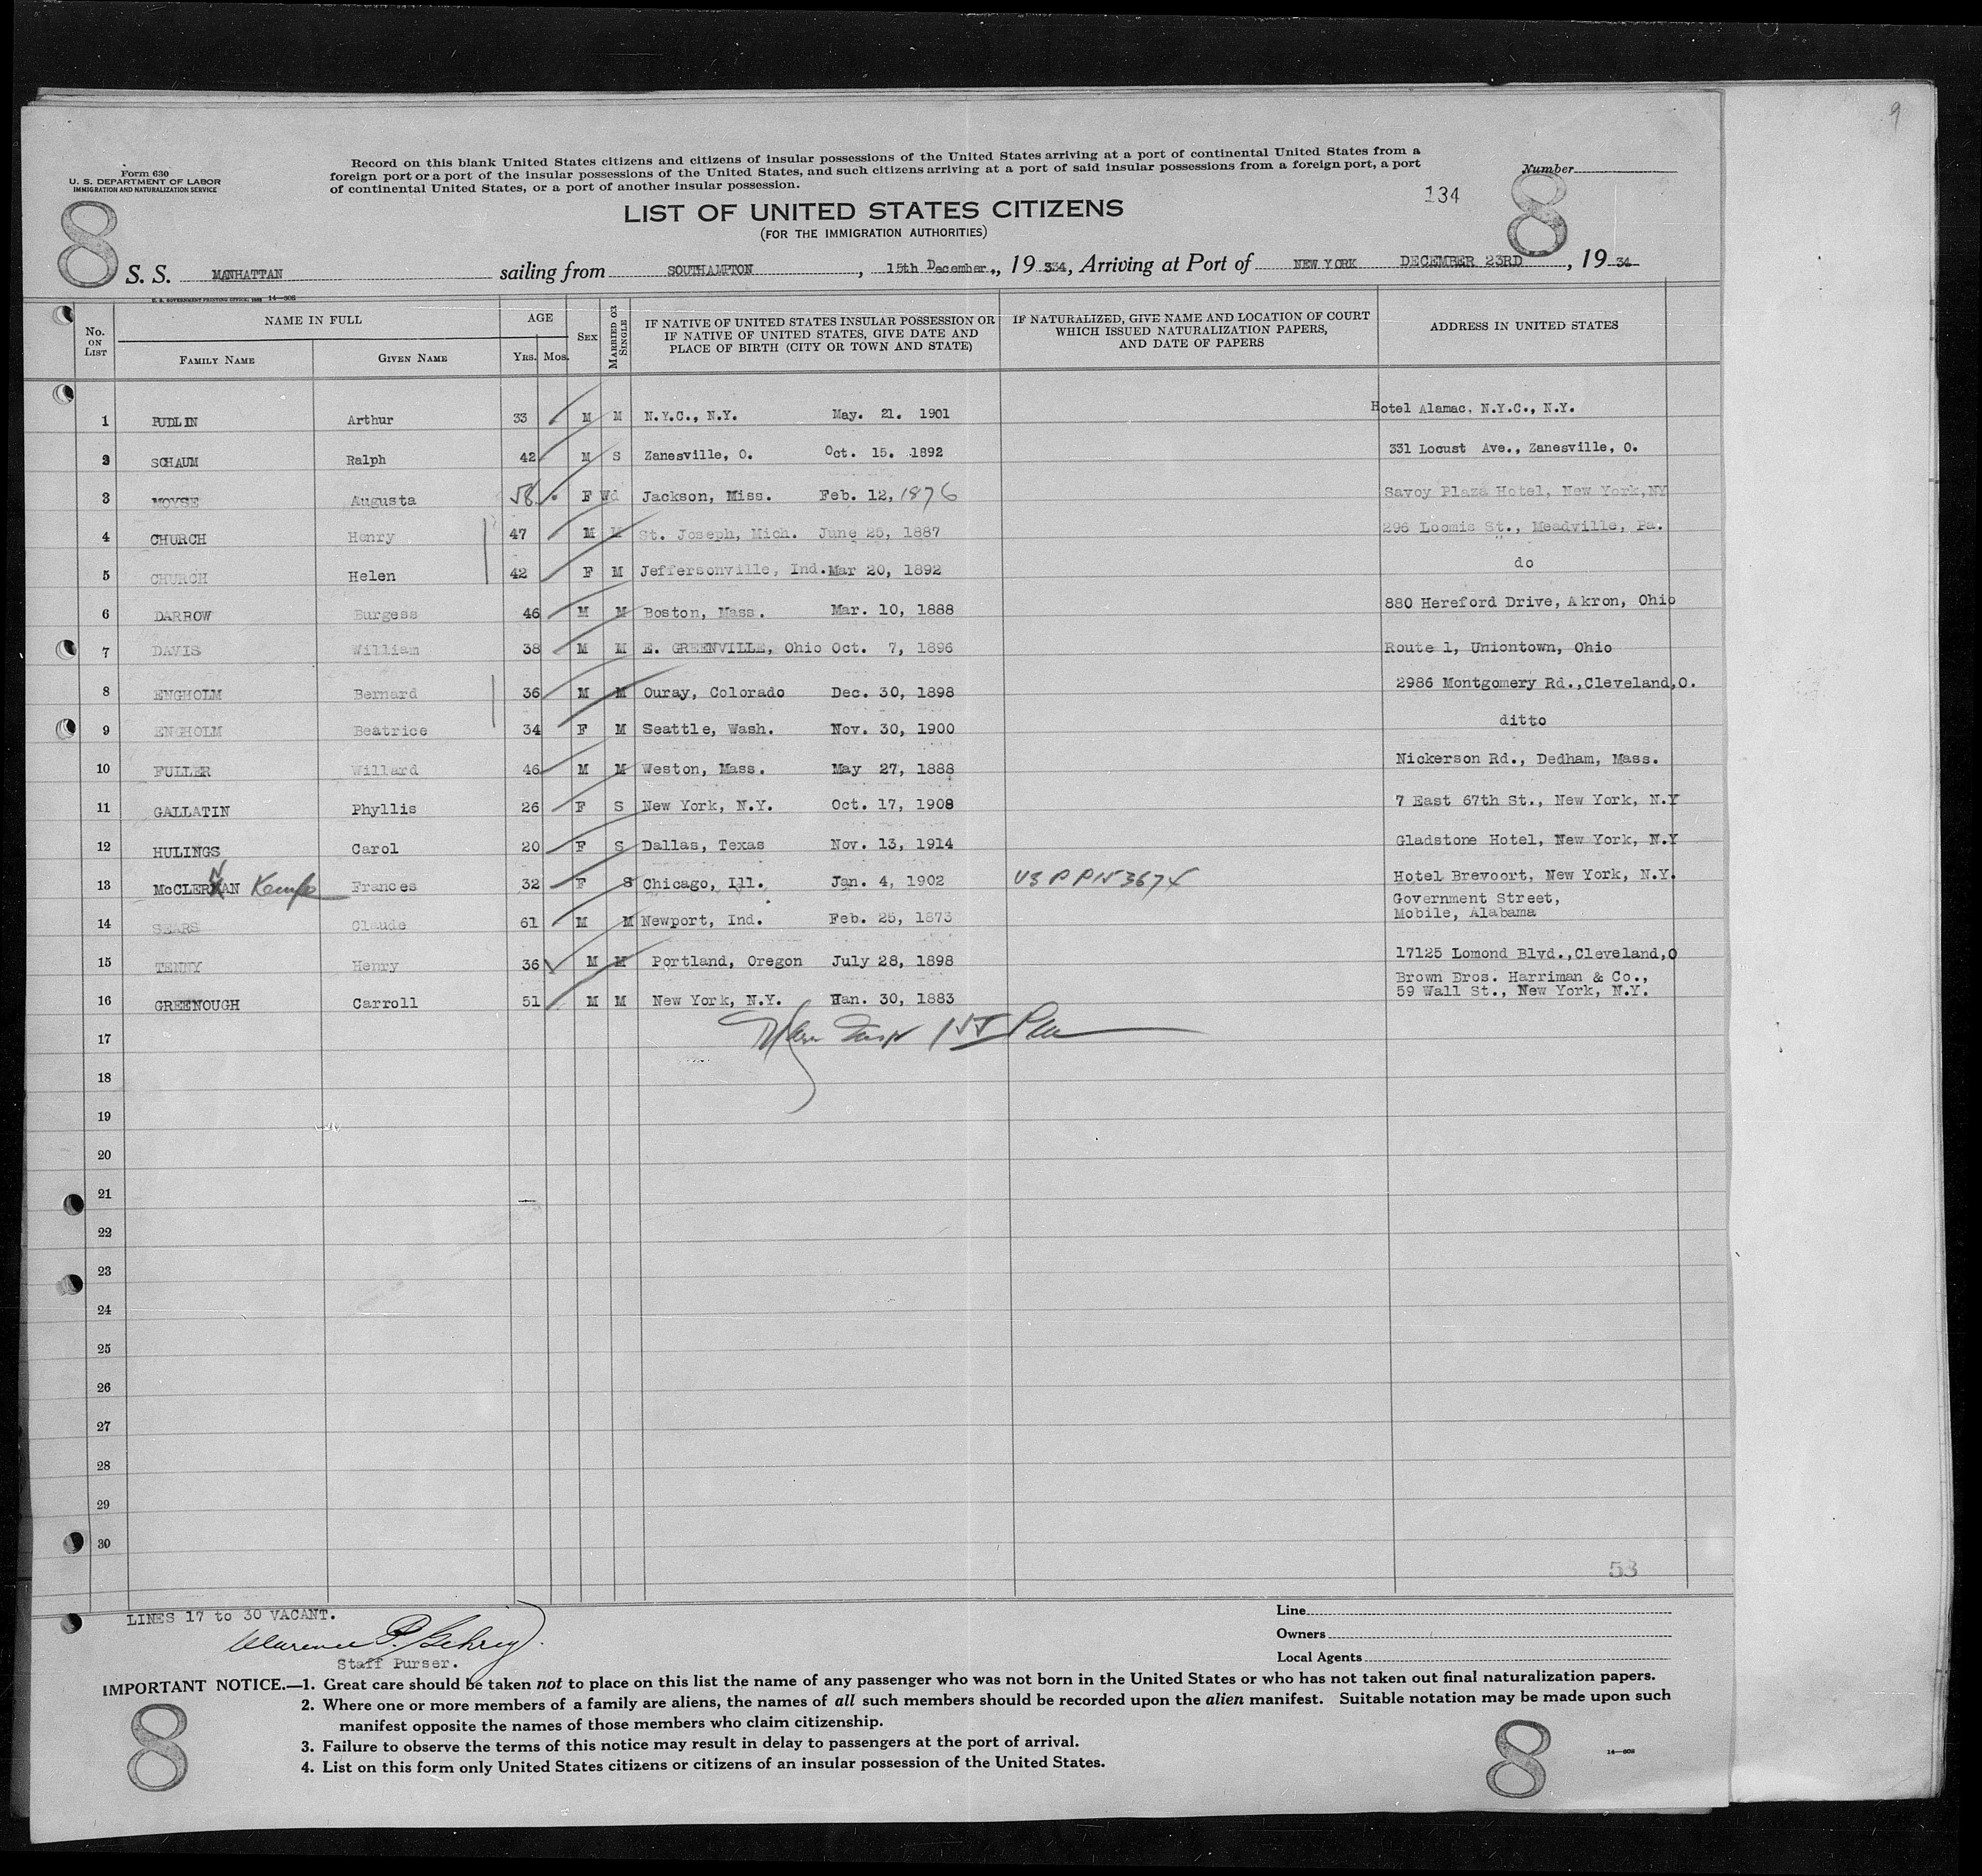 9
Form 630
U. S. DEPARTMENT OF LABOR
IMMIGRATION AND NATURALIZATION SERVICE
Record on this blank United States citizens and citizens of insular possessions of the United States arriving at a port of continental United States from a
foreign port or a port of the insular possessions of the United States, and such citizens arriving at a port of said insular possessions from a foreign port, a port
of continental United States, or a port of another insular possession.
Number
134
8
8
LIST OF UNITED STATES CITIZENS
(FOR THE IMMIGRATION AUTHORITIES)
S. S. MANHATTAN sailing from SOUTHAMPTON, 15th December., 19 334, Arriving at Port of NEW YORK DECEMBER 23RD, 19 34
U. S. GOVERNMENT PRINTING OFFICE: 14—808
No. ON LIST NAME IN FULL AGE SEX MARRIED OR SINGLE IF NATIVE OF UNITED STATES INSULAR POSSESSION OR IF NATIVE OF UNITED STATES, GIVE DATE AND PLACE OF BIRTH (CITY OR TOWN AND STATE) IF NATURALIZED, GIVE NAME AND LOCATION OF COURT WHICH ISSUED NATURALIZATION PAPERS, AND DATE OF PAPERS ADDRESS IN UNITED STATES
FAMILY NAME GIVEN NAME YRS. MOS.
1 PUDLIN Arthur 33 M M N.Y.C., N.Y. May. 21. 1901 Hotel Alamac, N.Y.C., N.Y.
2 SCHAUM Ralph 42 M S Zanesville, O. Oct. 15. 1892 331 Locust Ave., Zanesville, O.
3 MOYSE Augusta 58 F Wd Jackson, Miss. Feb. 12, 1876 Savoy Plaza Hotel, New York, NY
4 CHURCH Henry 47 M M St. Joseph, Mich. June 25, 1887 296 Loomis St., Meadville, Pa.
5 CHURCH Helen 42 F M Jeffersonville, Ind. Mar 20, 1892 do
6 DARROW Burgess 46 M M Boston, Mass. Mar. 10, 1888 880 Hereford Drive, Akron, Ohio
7 DAVIS William 38 M M E. GREENVILLE, Ohio Oct. 7, 1896 Route 1, Uniontown, Ohio
8 ENGHOLM Bernard 36 M M Ouray, Colorado Dec. 30, 1898 2986 Montgomery Rd., Cleveland, O.
9 ENGHOLM Beatrice 34 F M Seattle, Wash. Nov. 30, 1900 ditto
10 FULLER Willard 46 M M Weston, Mass. May 27, 1888 Nickerson Rd., Dedham, Mass.
11 GALLATIN Phyllis 26 F S New York, N.Y. Oct. 17, 1908 7 East 67th St., New York, N.Y
12 HULINGS Carol 20 F S Dallas, Texas Nov. 13, 1914 Gladstone Hotel, New York, N.Y
13 McCLERNAN Kemp Frances 32 F S Chicago, Ill. Jan. 4, 1902 Hotel Brevoort, New York, N.Y.
14 SEARS Claude 61 M M Newport, Ind. Feb. 25, 1873 Government Street,
Mobile, Alabama
15 TENNY Henry 36 M M Portland, Oregon July 28, 1898 17125 Lomond Blvd., Cleveland, O
16 GREENOUGH Carroll 51 M M New York, N.Y. Han. 30, 1883 Brown Bros. Harriman & Co.,
59 Wall St., New York, N.Y.
17
18
19
20
21
22
23
24
25
26
27
28
29
30
53
LINES 17 to 30 VACANT.
Clarence P. Gehrig
Staff Purser.
Line
Owners
Local Agents
IMPORTANT NOTICE.—1. Great care should be taken not to place on this list the name of any passenger who was not born in the United States or who has not taken out final naturalization papers.
2. Where one or more members of a family are aliens, the names of all such members should be recorded upon the alien manifest. Suitable notation may be made upon such
manifest opposite the names of those members who claim citizenship.
3. Failure to observe the terms of this notice may result in delay to passengers at the port of arrival.
4. List on this form only United States citizens or citizens of an insular possession of the United States.
8
8
14—808